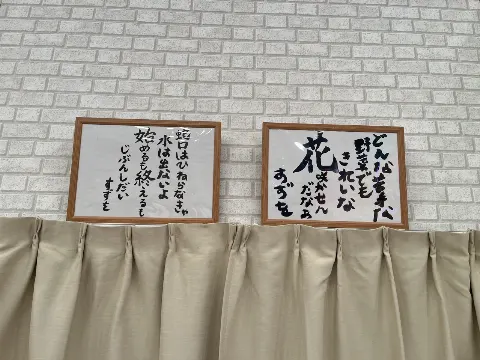 蛇口はひねらなきゃ
水は出ないよ
始めるも終えるも
じぶんしだい
すずを
どんな苦手な
野菜でも
きれいな
花
咲かせん
だなあ
すずを